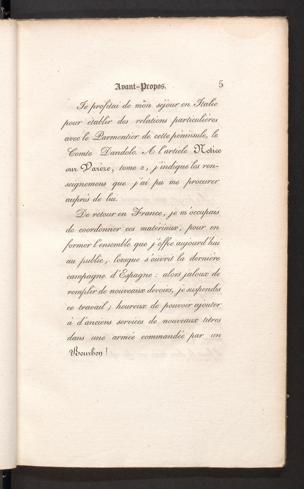 Avant-Propos. 5
Je profitai de mon séjour en Italie
pour établir des relations particulières
avec le Parmentier de cette péninsule, le
Comte Dandolo. A l'article Notice
sur Varèze, tome 2, j'indique les ren-
seignemens que j'ai pu me procurer
auprès de lui.
De retour en France, je m'occupais
de coordonner ces matériaux, pour en
former l'ensemble que j'offre aujourd'hui
au public, lorsque s'ouvrit la dernière
campagne d'Espagne : alors jaloux de
remplir de nouveaux devoirs, je suspendis
ce travail ; heureux de pouvoir ajouter
à d'anciens services de nouveaux titres
dans une armée commandée par un
Bourbon !